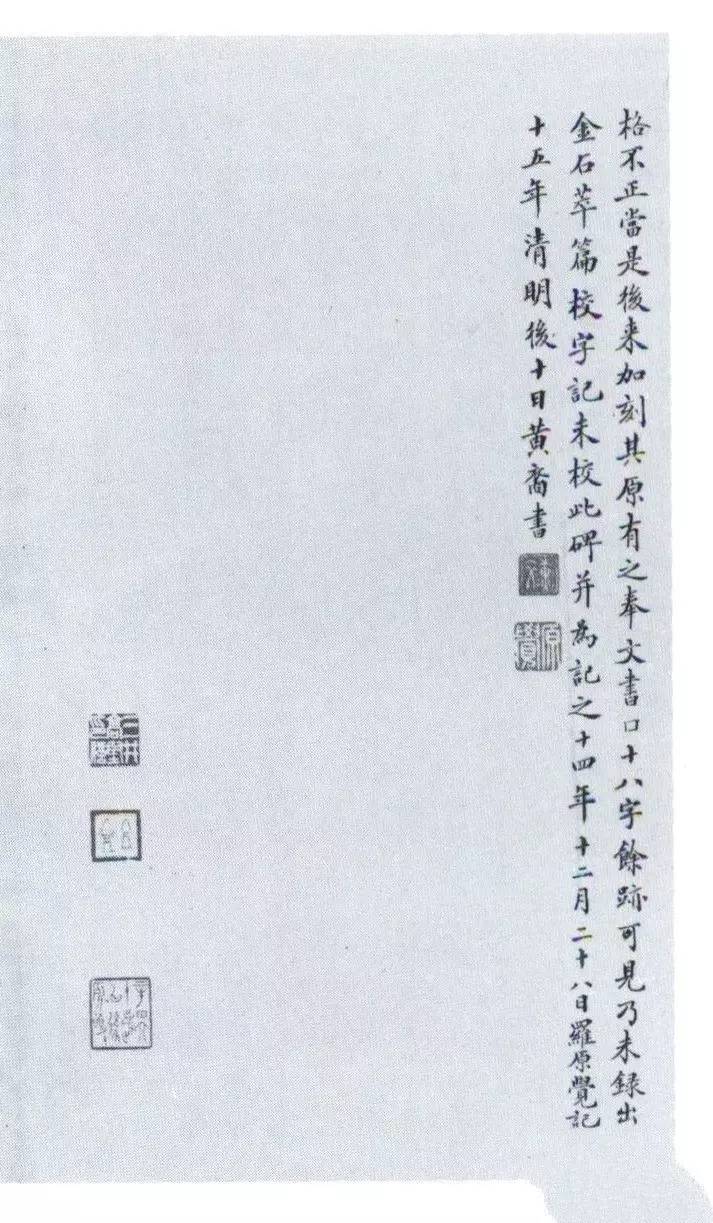 格不正當是後来加刻其原有之奉文書口十八字餘跡可見乃未録出
金石萃篇校字記未校此碑并為記之十四年十二月二十八日羅原覺記
十五年清明後十日黄裔書
原覺